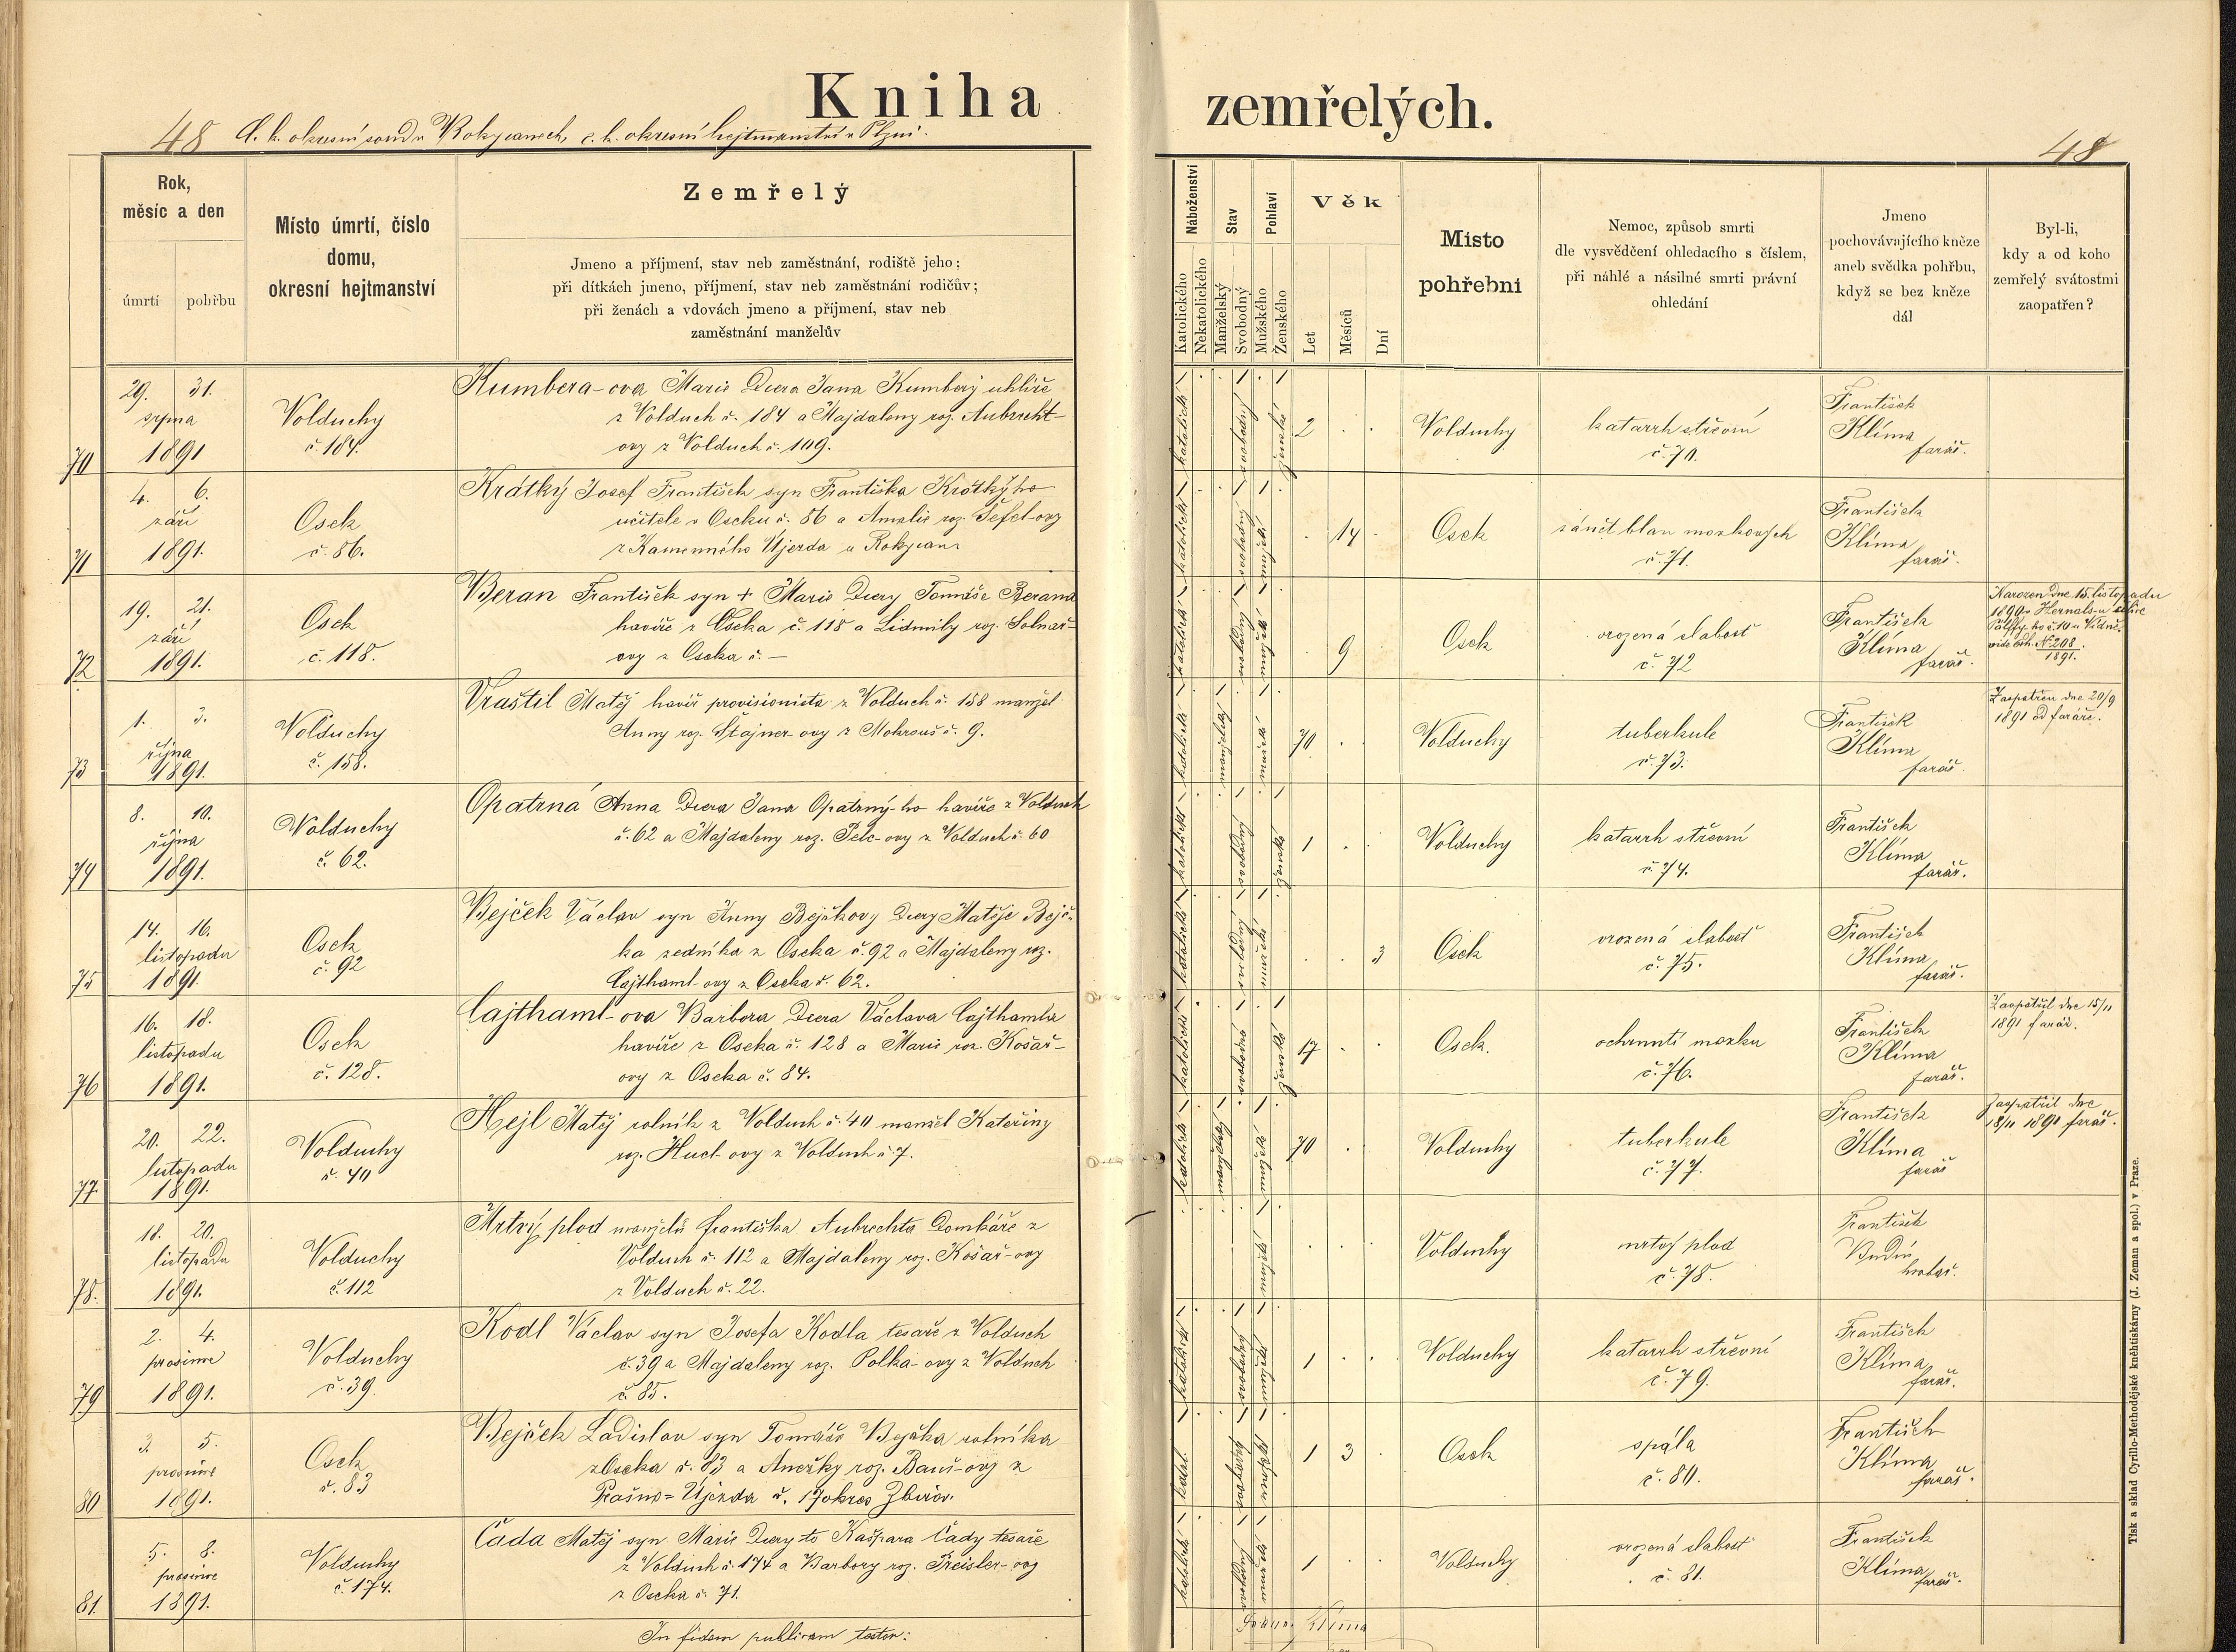 Kniha zemřelých.
48 C. k. okresní soud v Rokycanech, c. k. okresní hejtmanství v Plzni.
48
Rok,
měsíc a den
úmrtí
pohřbu
Místo úmrtí, číslo
domu,
okresní hejtmanství
Zemřelý
Jmeno a příjmení, stav neb zaměstnání, rodiště jeho;
při dítkách jmeno, příjmení, stav neb zaměstnání rodičův;
při ženách a vdovách jmeno a přijmení, stav neb
zaměstnání manželův
Náboženství
Katolického
Nekatolického
Stav
Manželský
Svobodný
Pohlaví
Mužského
Ženského
Věk
Let
Měsíců
Dní
Místo
pohřební
Nemoc, způsob smrti
dle vysvědčení ohledacího s číslem,
při náhlé a násilné smrti právní
ohledání
Jmeno
pochovávajícího kněze
aneb svědka pohřbu,
když se bez kněze
dál
Byl-li,
kdy a od koho
zemřelý svátostmi
zaopatřen?
70
29. 31.
srpna
1891
Volduchy
č. 184.
Kumbera-ova Marie dcera Jana Kumbery uhlíře
z Volduch č. 184 a Majdaleny roz. Aubrecht-
ovy z Volduch č. 109.
katolické svobodný ženské
2
Volduchy
katarrh střevní
č. 70.
František
Klíma
farář.
71
4. 6.
září
1891.
Osek
č. 86.
Krátký Josef František syn Františka Krátký-ho
učitele v Oseku č. 86 a Amalie roz. Šefel-ovy
z Kamenného Újezda u Rokycan.
katolické svobodný mužské
14
Osek
zánět blan mozkových
č. 71.
František
Klíma
farář.
72
19. 21.
září
1891.
Osek
č. 118.
Beran František syn + Marie dcery Tomáše Berana
havíře z Oseka č. 118 a Lidmily roz. Solnař-
ovy z Oseka č. —
katolické svobodný mužské
9
Osek
vrozená slabost
č. 72
František
Klíma
farář.
Narozen dne 15. listopadu
1890 v Hernals-u ulice
Pálffy-ho č. 10 u Vídně.
vide exh. № 208
1891.
73
1. 3.
října
1891.
Volduchy
č. 158.
Vraštil Matěj havíř provisionista z Volduch č. 158 manžel
Anny roz. Štajner-ovy z Mokrouš č. 9.
katolické manželský mužské
70
Volduchy
tuberkule
č. 73.
František
Klíma
farář.
Zaopatřen dne 20/9
1891 od faráře.
74
8. 10.
října
1891.
Volduchy
č. 62.
Opatrná Anna dcera Jana Opatrný-ho havíře z Volduch
č. 62 a Majdaleny roz. Pelc-ovy z Volduch č. 60
katolické svobodný ženské
1
Volduchy
katarrh střevní
č. 74.
František
Klíma
farář.
75
14. 16.
listopadu
1891.
Osek
č. 92
Bejček Václav syn Anny Bejčkovy dcery Matěje Bejč-
ka zedníka z Oseka č. 92 a Majdaleny roz.
Cajthaml-ovy z Oseka č. 62.
katolické svobodný mužské
3
Osek
vrozená slabost
č. 75.
František
Klíma
farář.
76
16. 18.
listopadu
1891.
Osek
č. 128.
Cajthaml-ova Barbora dcera Václava Cajthamla
havíře z Oseka č. 128 a Marie roz. Košař-
ovy z Oseka č. 84.
katolické svobodna ženské
17
Osek.
ochrnutí mozku
č. 76.
František
Klíma
farář.
Zaopatřil dne 15/11
1891 farář.
77
20. 22.
listopadu
1891.
Volduchy
č. 40
Hejl Matěj rolník z Volduch č. 40 manžel Kateřiny
roz. Hucl-ovy z Volduch č. 7.
katolické manželský mužské
70
Volduchy
tuberkule
č. 77.
František
Klíma
farář
Zaopatřil dne
18/11 1891 farář.
78.
18. 20.
listopadu
1891.
Volduchy
č. 112
Mrtvý plod manželů Františka Aubrechta domkáře z
Volduch č. 112 a Majdaleny roz. Košař-ovy
z Volduch č. 22.
mužské
Volduchy
mrtvý plod
č. 78.
František
hrobař.
79
2. 4.
prosince
1891.
Volduchy
č. 39.
Kodl Václav syn Josefa Kodla tesaře z Volduch
č. 39 a Majdaleny roz. Polka-ovy z Volduch
č. 85.
katolické svobodný mužské
1
Volduchy
katarrh střevní
č. 79.
František
Klíma
farář.
80
3. 5.
prosince
1891.
Osek
č. 83
Bejček Ladislav syn Tomáše Bejčka rolníka
z Oseka č. 83 a Anežky roz. Bauš-ovy z
Prašno-Újezda č. 17 okres Zbirov.
katol. svobodný mužské
1 3
Osek
spála
č. 80.
František
Klíma
farář.
81.
5. 8.
prosince
1891.
Volduchy
č. 174.
Čada Matěj syn Marie dcery to Kašpara Čady tesaře
z Volduch č. 174 a Barbory roz. Preisler-ovy
z Oseka č. 71.
katolické svobodný mužské
1
Volduchy
vrozená slabost
č. 81.
František
Klíma
farář.
In fidem publicam testor:
Klíma
Tisk a sklad Cyrillo-Methodějské kněhtiskárny (J. Zeman a spol.) v Praze.